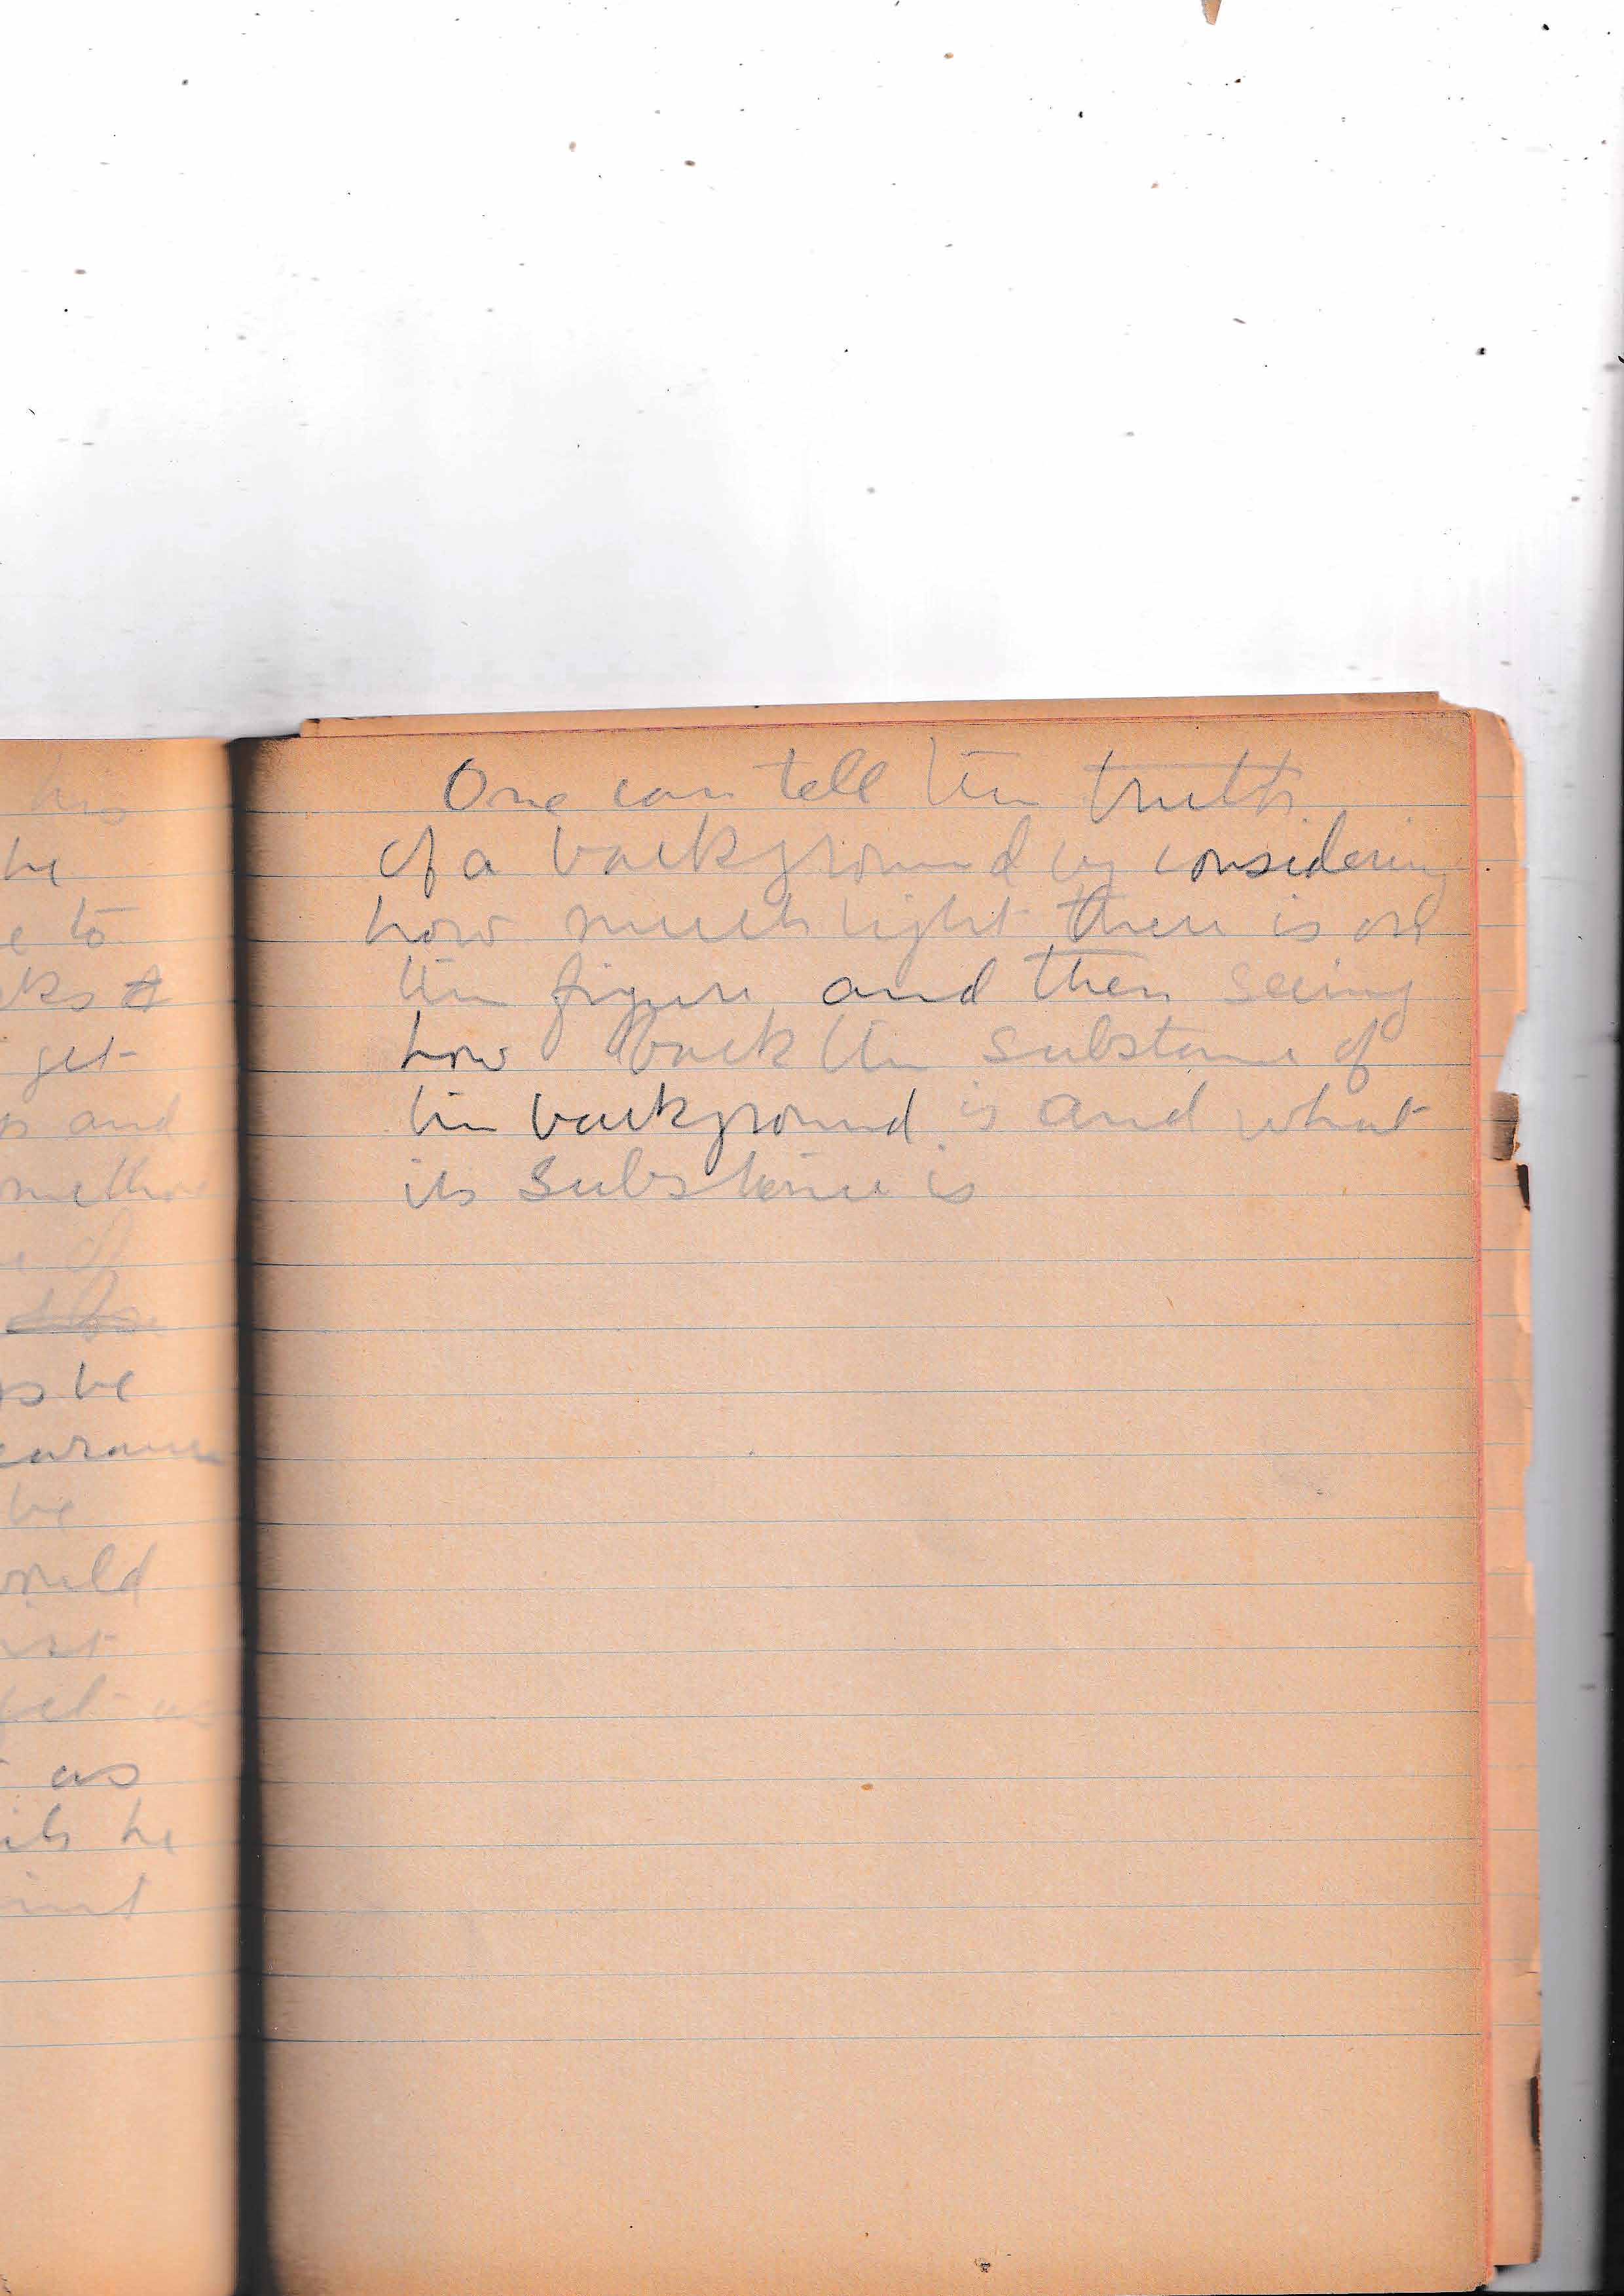 his
he
e to
ks A
get
s and
metho
e of
s be
earance
be
ould
as
its he
One can tell the truth
of a background by considering
how much light there is on
the figure and then seeing
how back the substance of
the background is and what
its substance is